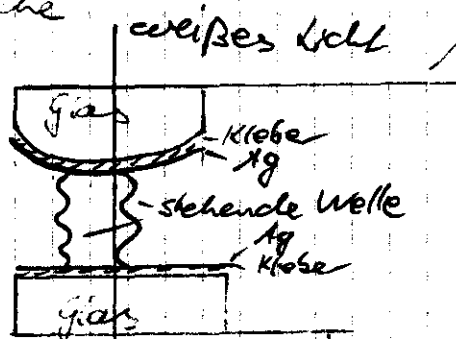 weißes Licht
Glas
Kleber
Ag
stehende Welle
Ag
Kleber
Glas